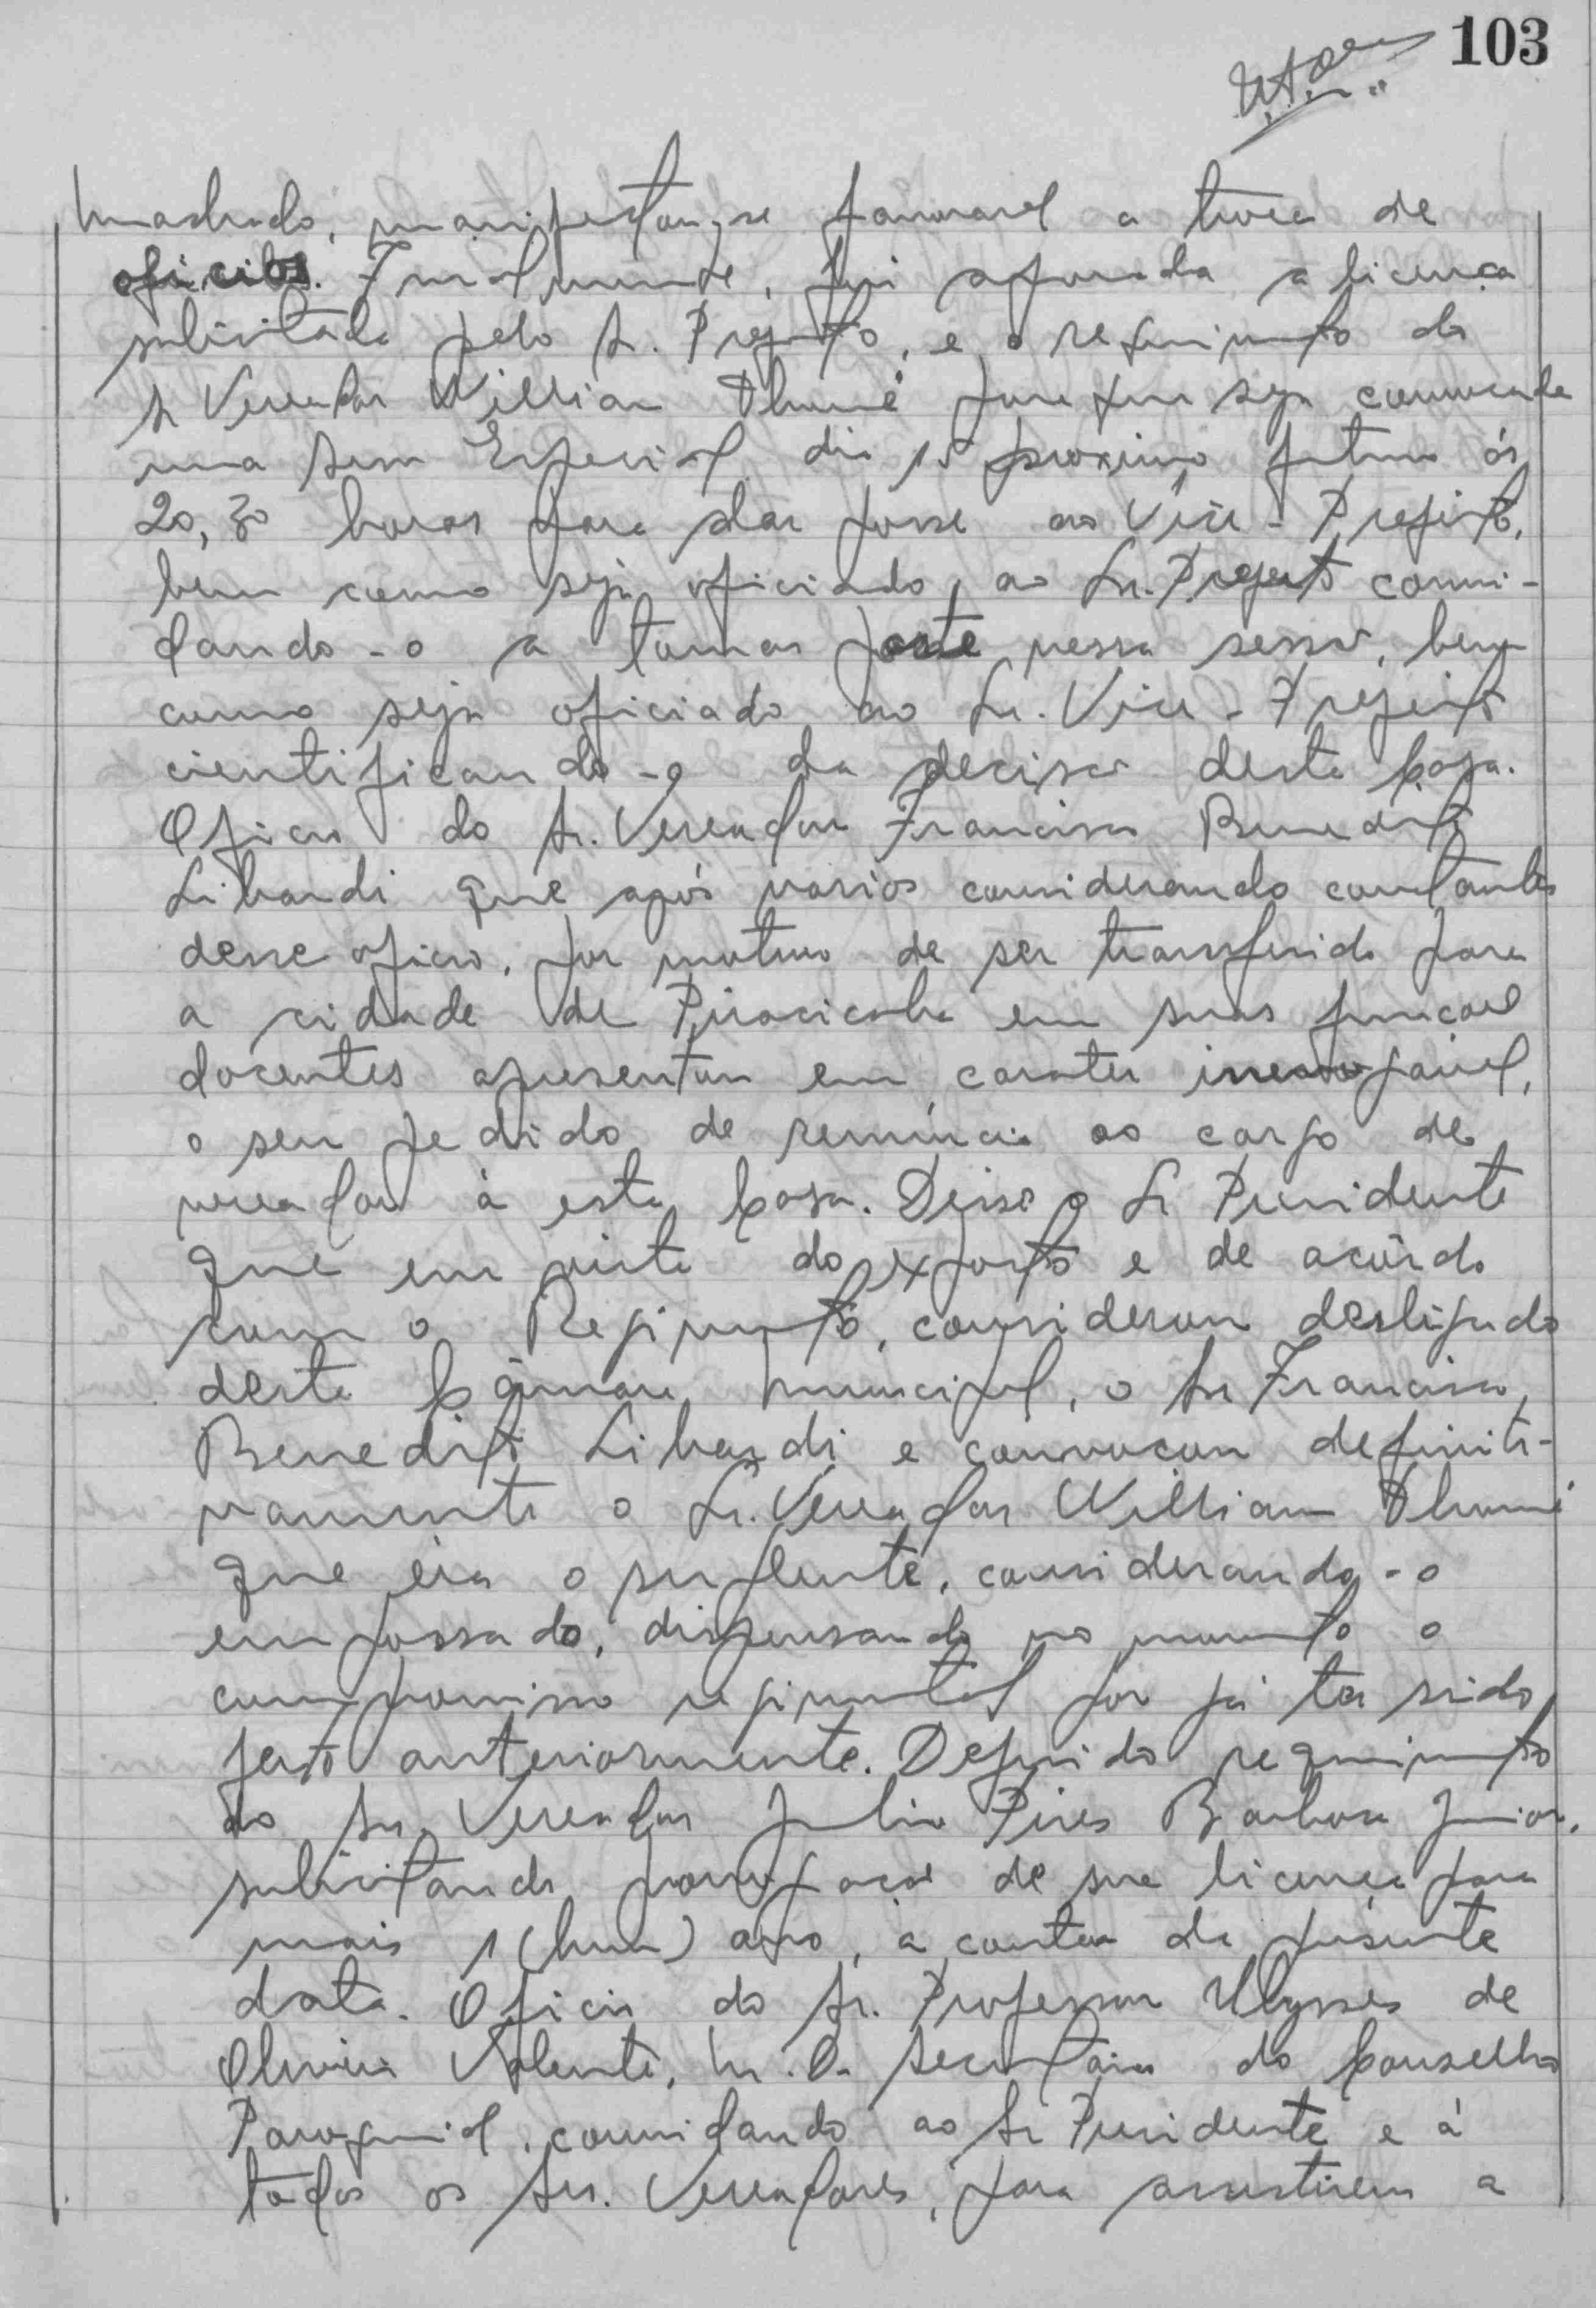 103
Machado, manifestou-se favoravel a troca de
oficios. Finalmente, foi aprovada a licença
solicitada pelo Sr. Prefeito, e o requerimento do
Sr Vereador Willian Thumé para que seja convocada
uma Sessão Especial dia 15 proximo futuro ás
20,30 horas para dar posse ao Vice-Prefeito,
bem como seja oficiado, ao Sr. Prefeito convi-
dando-o a tomar parte nessa sessão, bem
como seja oficiado ao Sr. Vice-Prefeito
cientificando-o da decisão desta Casa.
Oficio do Sr. Vereador Francisco Benedito
Libardi que após varios considerando constantes
desse oficio, por motivo de ser transferido para
a cidade de Piracicaba em suas funções
docentes apresentou em carater irrevogável,
o seu pedido de renúncia ao cargo de
vereador á esta Casa. Disse o Sr Presidente
que em vista do exposto e de acôrdo
com o Regimento, considerou desligado
desta Câmara Municipal, o Sr Francisco
Benedito Libardi e convocou definiti-
vamente o Sr. Vereador Willian Thumé
que éra o suplente, considerando-o
empossado, dispensando no momento o
compromisso regimental por já ter sido
feito anteriormente. Deferido requerimento
do Sr. Vereador Julio Pires Barbosa Junior,
solicitando prorrogação de sua licença para
mais 1 (hum) ano, á contar da presente
data. Oficio do Sr. Professor Ulysses de
Oliveira Valente, M.D. Secretário do Conselho
Paroquial, convidando ao Sr Presidente e á
todos os Srs. Vereadores, para assistirem a